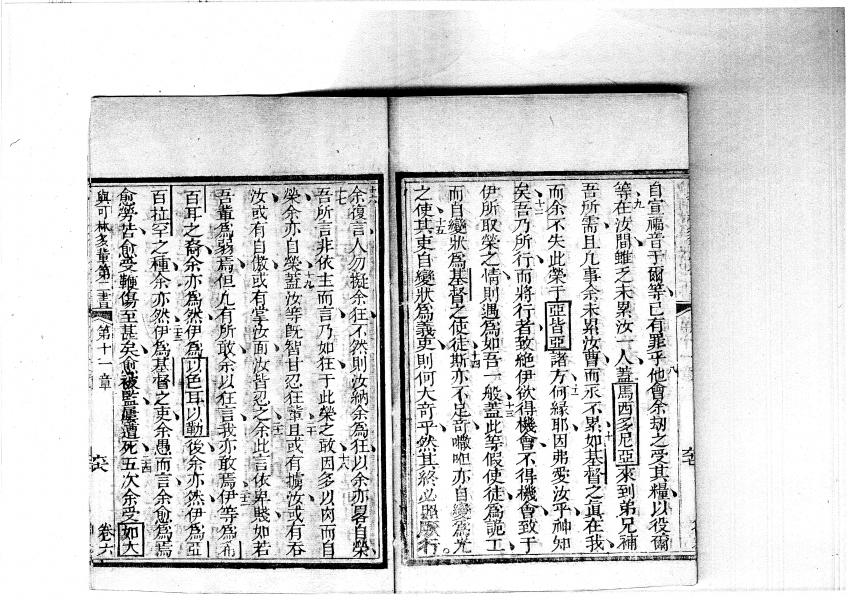 自宣福音于爾等已有罪乎他會余刼之受其糧以役爾
等在汝間雖乏未累汝一人蓋馬西多尼亞來到弟兄補
吾所需且凡事余未累汝曹而永不累如基督之真在我
而余不失此榮于亞皆亞諸方何緣耶因弗愛汝乎神知
矣吾乃所行而將行者致絶伊欲得機會不得機會致于
伊所取榮之情則遇為如吾一般蓋此等假使徒為詭工
而自變狀為基督之使徒斯亦不足奇㘔呾亦自變為光
之使其吏自變狀為義吏則何大奇乎然其終必照厥行
余復言人勿擬余狂不然則汝納余為狂以余亦畧自榮
吾所言非依主而言乃如狂于此榮之敢因多以肉而自
榮余亦自榮蓋汝等既智甘忍狂輩且或有擄汝或有吞
汝或有自傲或有掌汝面汝皆忍之余此言依卑賤如若
吾輩為弱焉但凡有所敢余以狂言我亦敢焉伊等為希
百耳之裔余亦為然伊為以色耳以勒後余亦然伊為亞
百拉罕之種余亦然伊為基督之吏余愚而言余愈為焉
愈勞苦愈受鞭傷至甚矣愈被監屢遭死五次余受如大
與可林多輩第二書 第十一章 卷六